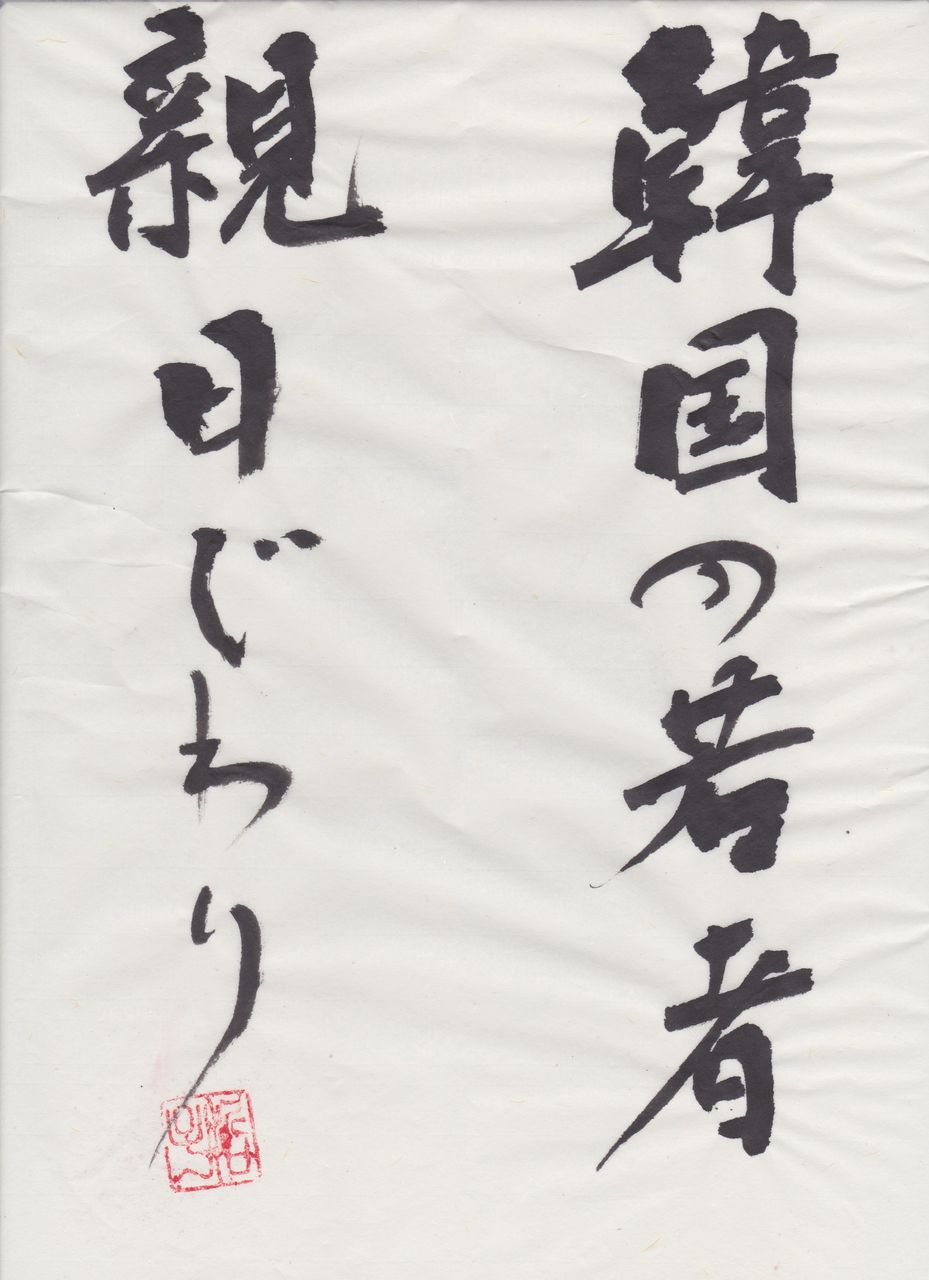 韓国の若者
親日じわり